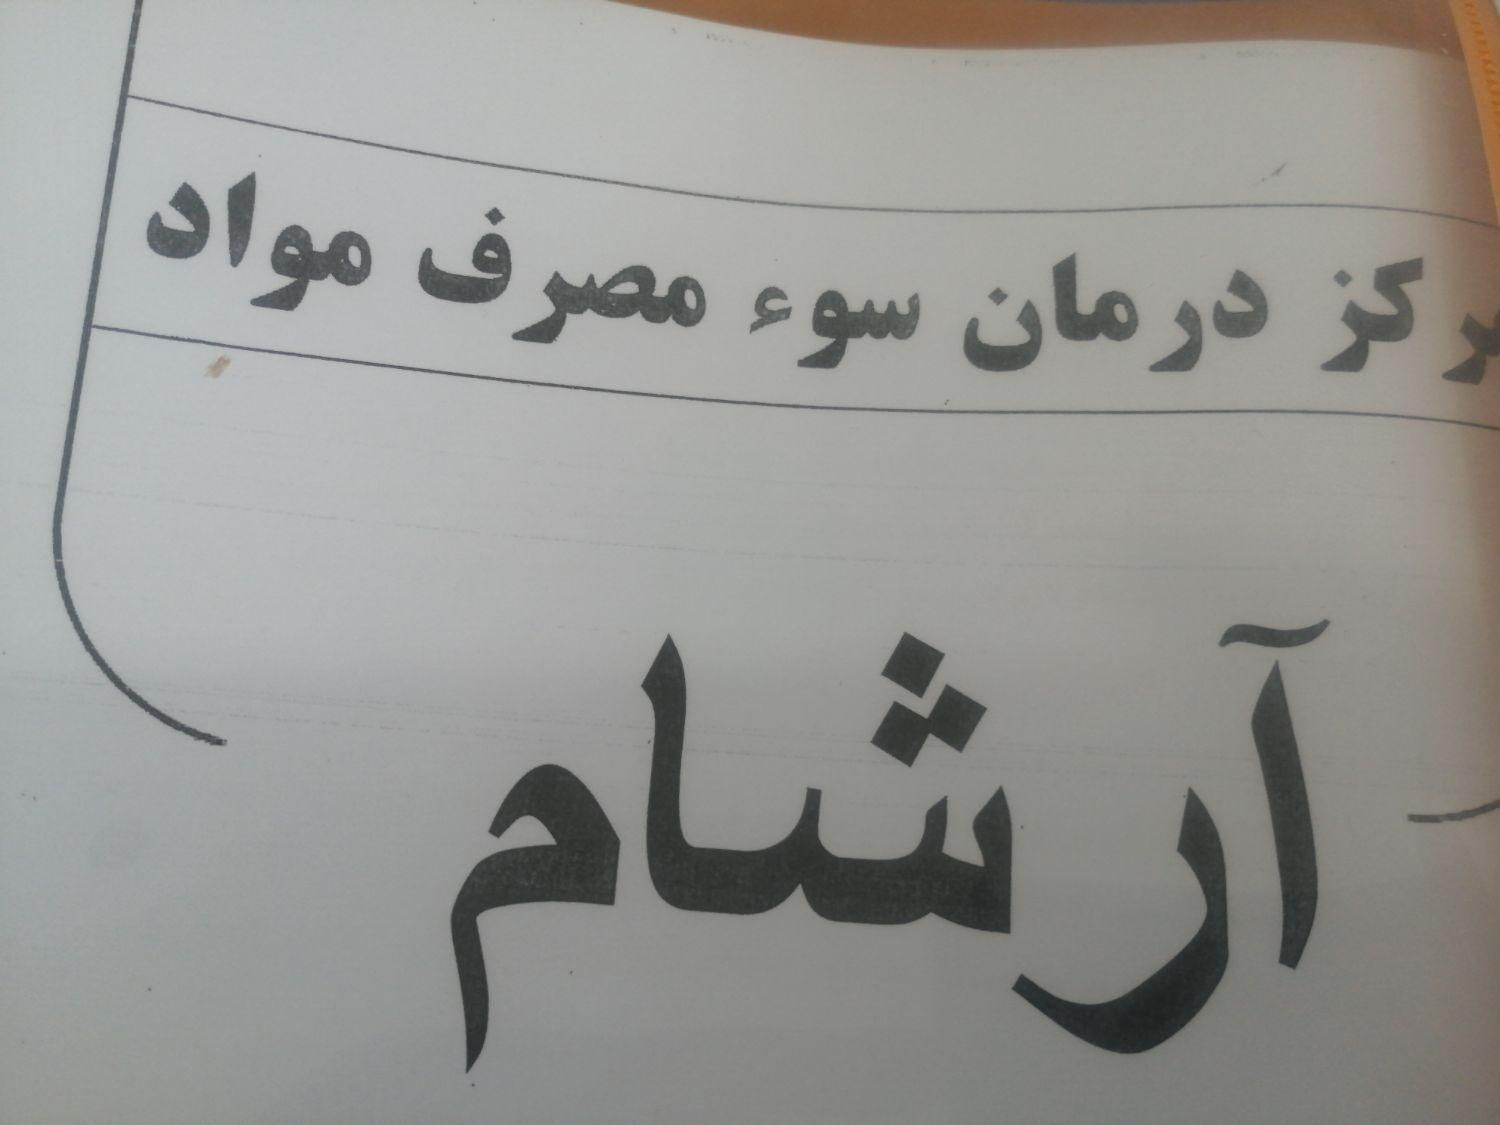 مرکز درمان سوء مصرف مواد
آرشام